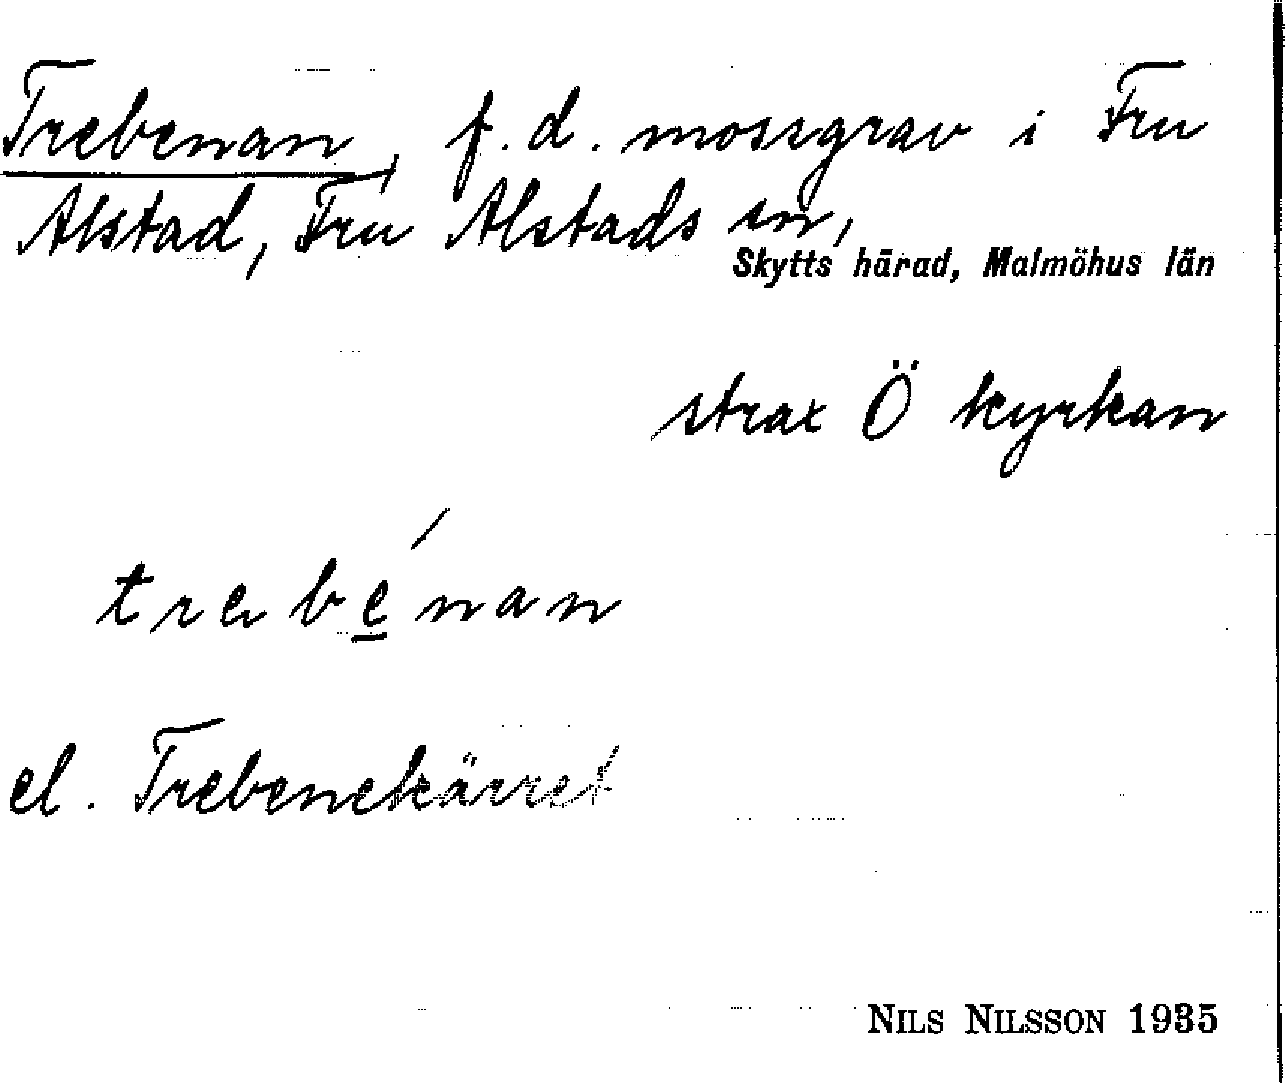 Trebenan, f.d. mossgrav i Fru
Alstad, Fru Alstads sn,
Skytts härad, Malmöhus län
strax Ö kyrkan
trebenan
el. Trebenekärret
NILS NILSSON 1935